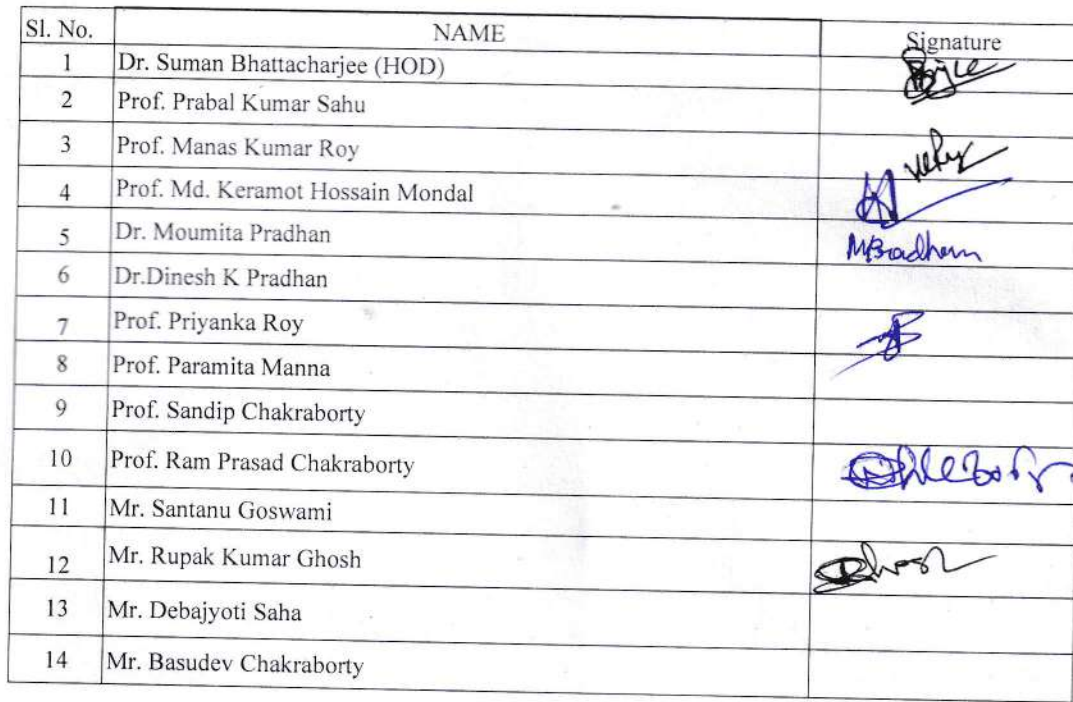 Sl. No. NAME Signature
1 Dr. Suman Bhattacharjee (HOD)
2 Prof. Prabal Kumar Sahu
3 Prof. Manas Kumar Roy
4 Prof. Md. Keramot Hossain Mondal
5 Dr. Moumita Pradhan MPradhan
6 Dr.Dinesh K Pradhan
7 Prof. Priyanka Roy
8 Prof. Paramita Manna
9 Prof. Sandip Chakraborty
10 Prof. Ram Prasad Chakraborty
11 Mr. Santanu Goswami
12 Mr. Rupak Kumar Ghosh
13 Mr. Debajyoti Saha
14 Mr. Basudev Chakraborty